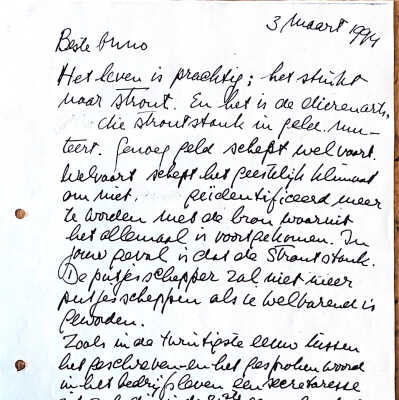 3 maart 1994
Beste Onno
Het leven is prachtig; het stinkt
naar stront. En het is de dierenarts,
die strontstank in geld mun-
teert. Genoeg geld schept welvaart.
Welvaart schept het geestelijk klimaat
om niet. geïdentificeerd meer
te worden met de bron waaruit
het allemaal is voortgekomen. In
jouw geval is dat de Strontstank.
De putjesschepper zal niet meer
putjesscheppen als ie welvarend is
geworden.
Zoals in de twintigste eeuw tussen
het geschreven- en het gesproken woord
in het bedrijfsleven een secretaresse